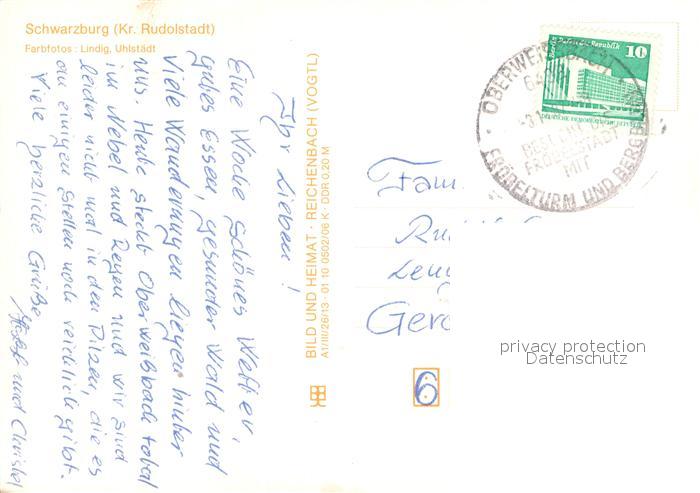 Schwarzburg (Kr. Rudolstadt)
Farbfotos : Lindig, Uhlstädt
Ihr Lieben!
Eine Woche schönes Wetter,
gutes Essen, gesunder Wald und
viele Wanderungen liegen hinter
uns. Heute steckt Oberweißbach total
im Nebel und Regen und wir sind
leider nicht mal in den Pilzen, die es
an einigen Stellen noch reichlich gibt.
Viele herzliche Grüße
und Christel
BILD UND HEIMAT · REICHENBACH (VOGTL)
A1/III/26/13 · 01 10 0502/06 K · DDR 0,20 M
Berlin, Palast der Republik
10
DEUTSCHE DEMOKRATISCHE
OBERWEISSBACH
FRÖBELSTADT
MIT
FRÖBELTURM UND BERGBAHN
Fam.
Ger
6
privacy protection
Datenschutz